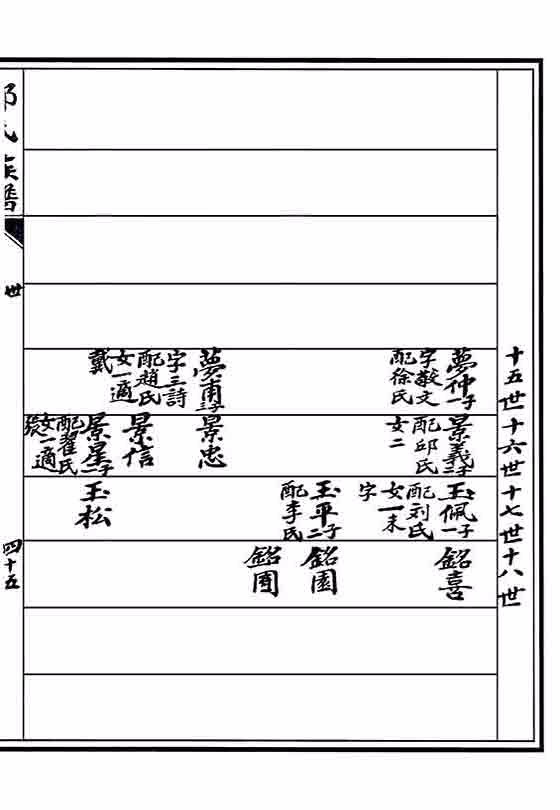 十五世
十六世
十七世
十八世
夢仲一子
字敬文
配徐氏
夢甫三子
字三詩
配趙氏
女一適
戴
景義二子
配邱氏
女二
景忠
景信
景星一子
配翟氏
女一適
張
玉佩一子
配刘氏
女一未
字
玉平二子
配李氏
玉松
銘喜
銘園
銘圃
氏族譜
世
四十五